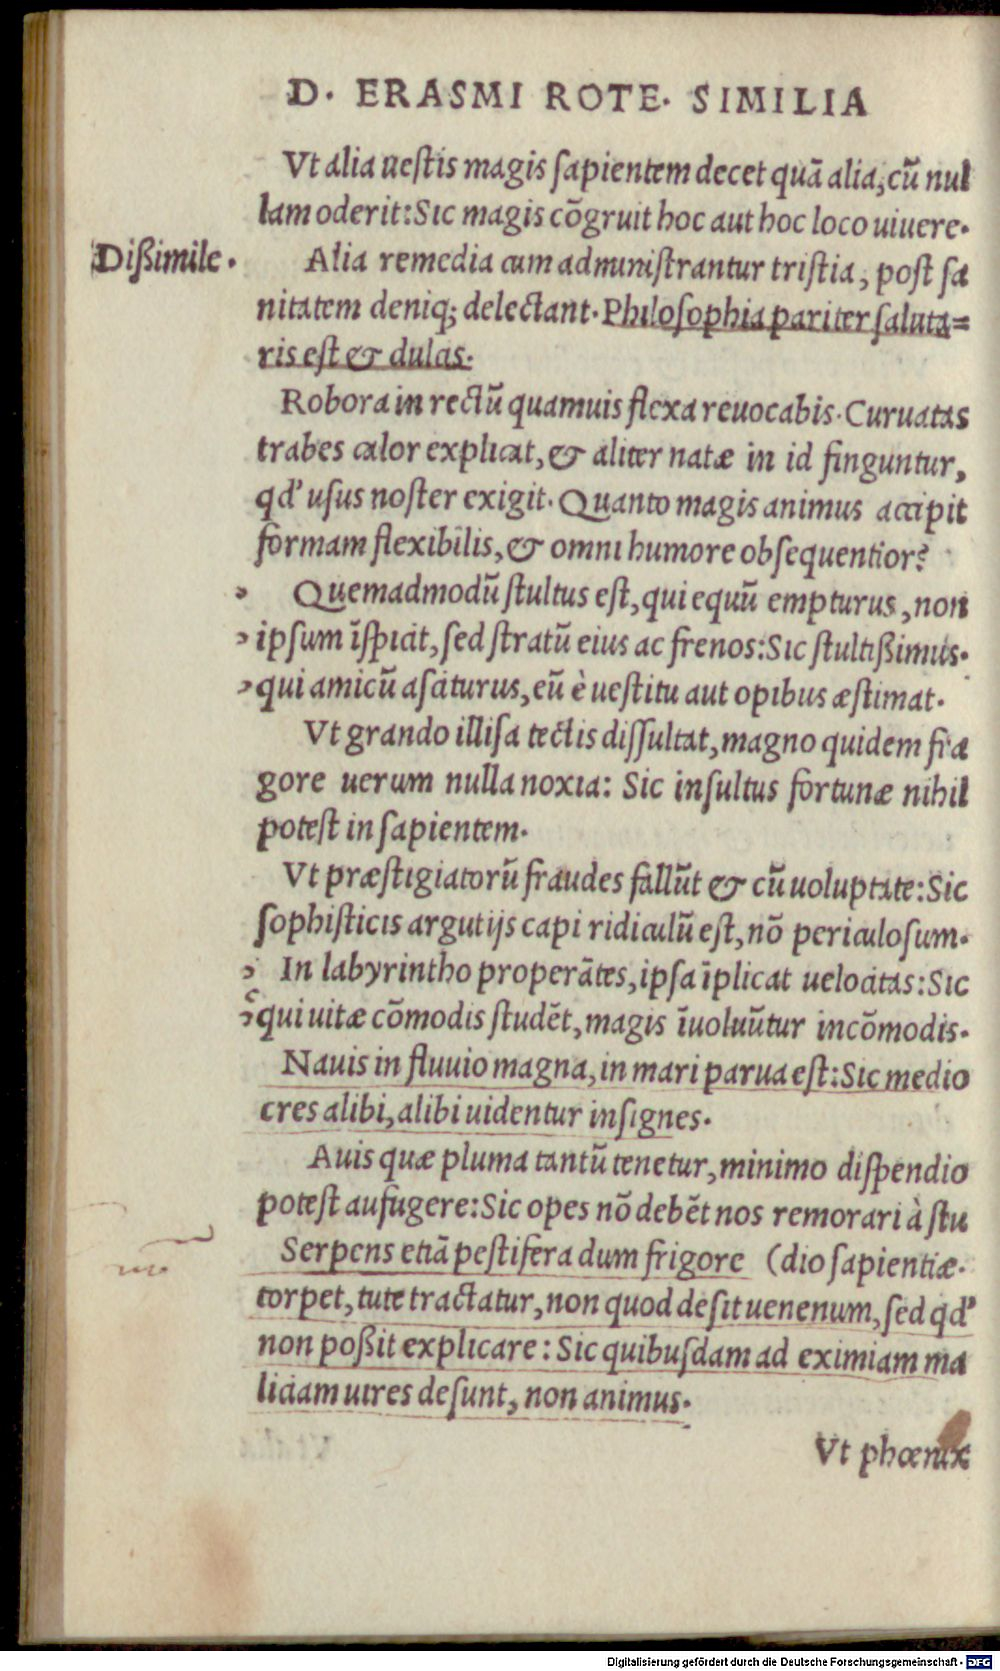 D. ERASMI ROTE. SIMILIA
Vt alia uestis magis sapientem decet quā alia, cū nul
lam oderit: Sic magis cōgruit hoc aut hoc loco uiuere.
Dißimile.
Alia remedia cum administrantur tristia, post sa
nitatem deniq; delectant. Philosophia pariter saluta=
ris est & dulcis.
Robora in rectū quamuis flexa reuocabis. Curuatas
trabes calor explicat, & aliter natæ in id finguntur,
qd' usus noster exigit. Quanto magis animus accipit
formam flexibilis, & omni humore obsequentior?
Quemadmodū stultus est, qui equū empturus, non
ipsum īspicit, sed stratū eius ac frenos: Sic stultißimus.
qui amicū asciturus, eū è uestitu aut opibus æstimat.
Vt grando illisa tectis dissultat, magno quidem fra
gore uerum nulla noxia: Sic insultus fortunæ nihil
potest in sapientem.
Vt præstigiatorū fraudes fallūt & cū uoluptate: Sic
sophisticis argutijs capi ridiculū est, nō periculosum.
In labyrintho properātes, ipsa īplicat uelocitas: Sic
qui uitæ cōmodis studēt, magis īuoluūtur incōmodis.
Nauis in fluuio magna, in mari parua est: Sic medio
cres alibi, alibi uidentur insignes.
Auis quæ pluma tantū tenetur, minimo dispendio
potest aufugere: Sic opes nō debēt nos remorari à stu
Serpens etiā pestifera dum frigore (dio sapientiæ.
torpet, tute tractatur, non quod desit uenenum, sed qd'
non poßit explicare: Sic quibusdam ad eximiam ma
liciam uires desunt, non animus.
Vt phœnix
Digitalisierung gefördert durch die Deutsche Forschungsgemeinschaft - DFG